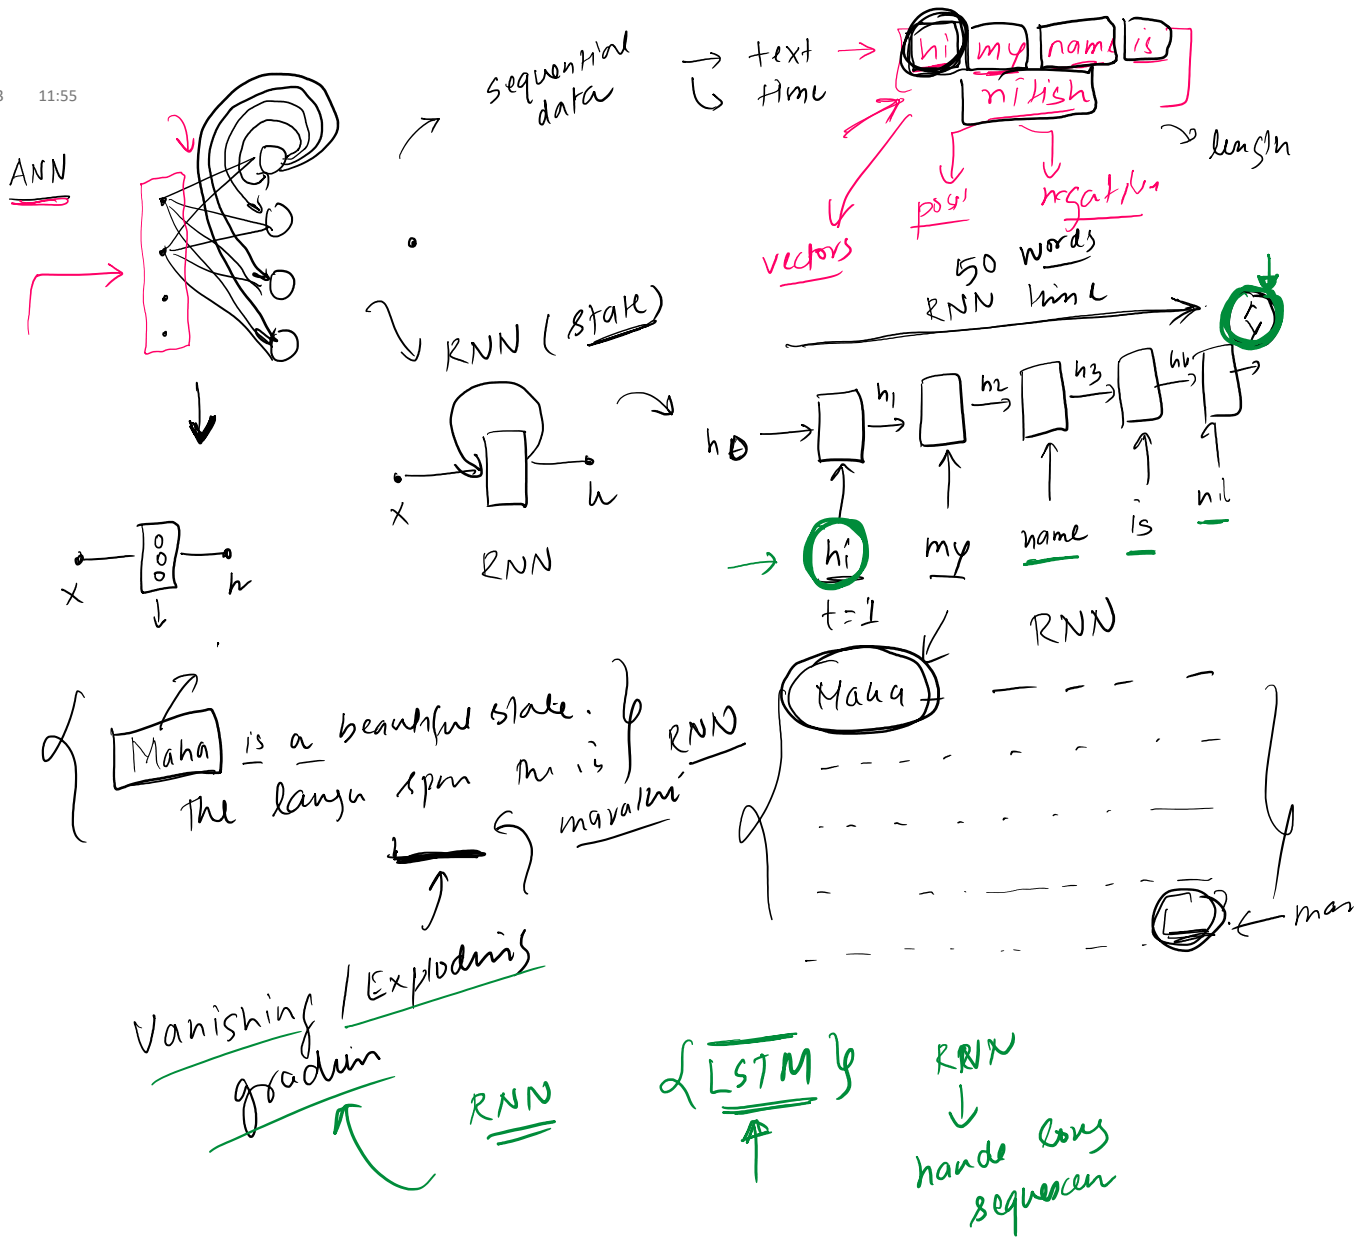 11:55
ANN
sequential
data
text
time
hi my name is
nitish
length
posi
negative
vectors
50 words
RNN time
RNN (state)
h1
h2
h3
h4
h0
x
h
RNN
hi my name is nit
t=1
RNN
x
h
Maha is a beautiful state.
The langu spm thi is
RNN
marathi
Maha
mar
Vanishing / Exploding
gradien
RNN
{LSTM}
RNN
handle long
sequencen